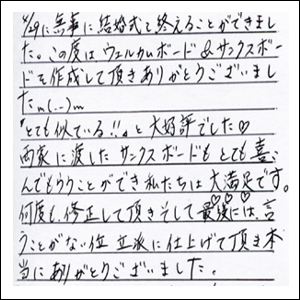 4/29に無事に結婚式を終えることができまし
た。この度はウェルカムボード&サンクスボー
ドを作成して頂きありがとうございまし
たm(_ _)m
「とても似ている!!」と大好評でした♡
両家に渡したサンクスボードもとても喜
んでもらうことができ私たちは大満足です。
何度も、修正して頂きそして最後には、言
うことがない位 立派に仕上げて頂き本
当にありがとうございました。